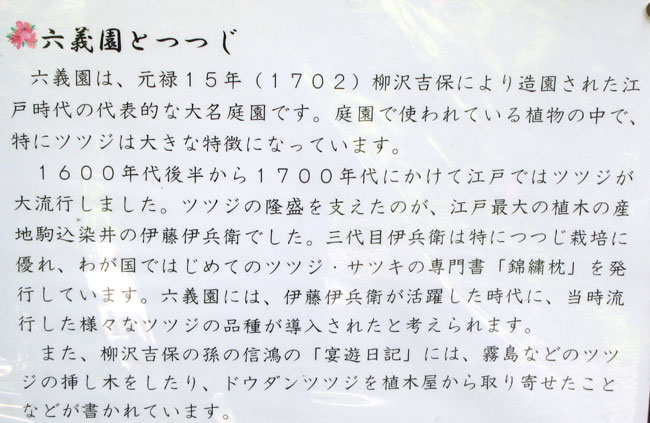 六義園とつつじ
六義園は、元禄１５年（１７０２）柳沢吉保により造園された江
戸時代の代表的な大名庭園です。庭園で使われている植物の中で、
特にツツジは大きな特徴になっています。
１６００年代後半から１７００年代にかけて江戸ではツツジが
大流行しました。ツツジの隆盛を支えたのが、江戸最大の植木の産
地駒込染井の伊藤伊兵衛でした。三代目伊兵衛は特につつじ栽培に
優れ、わが国ではじめてのツツジ・サツキの専門書「錦繍枕」を発
行しています。六義園には、伊藤伊兵衛が活躍した時代に、当時流
行した様々なツツジの品種が導入されたと考えられます。
また、柳沢吉保の孫の信鴻の「宴遊日記」には、霧島などのツツ
ジの挿し木をしたり、ドウダンツツジを植木屋から取り寄せたこと
などが書かれています。